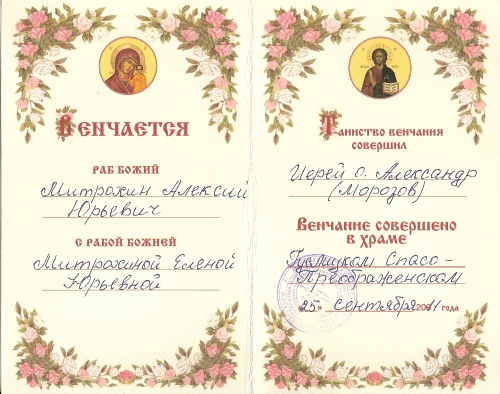 Венчается
раб Божий
Митрохин Алексий
Юрьевич
с рабой Божией
Митрохиной Еленой
Юрьевной
Таинство венчания
совершил
Иерей о. Александр
(Морозов)
Венчание совершено
в храме
Гуслицком Спасо-
Преображенском
25 » сентября 2011 года